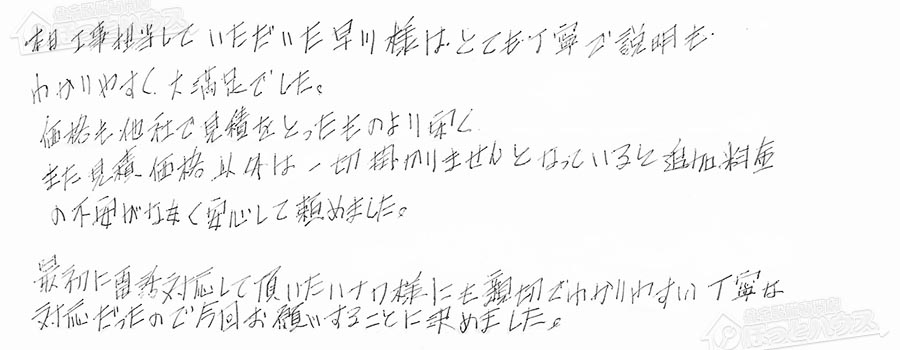 当日工事担当していただいた早川様は、とても丁寧で説明も
わかりやすく、大満足でした。
価格も他社で見積をとったものより安く
また見積価格以外は一切掛かりませんとなっていると追加料金
の不安がなく安心して頼めました。
最初に電話対応して頂いた 様にも親切でわかりやすい丁寧な
対応だったので今回お願いすることに決めました。